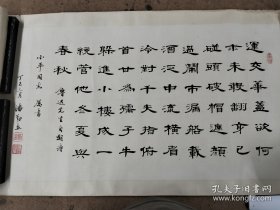 運交華蓋欲何
求未敢翻身已
碰頭破帽遮顏
過鬧市漏船載
酒泛中流橫眉
冷對千夫指俯
首甘為孺子牛
躲進小樓成一
統管他冬夏與
春秋 魯迅先生自嘲詩
小平同志屬書